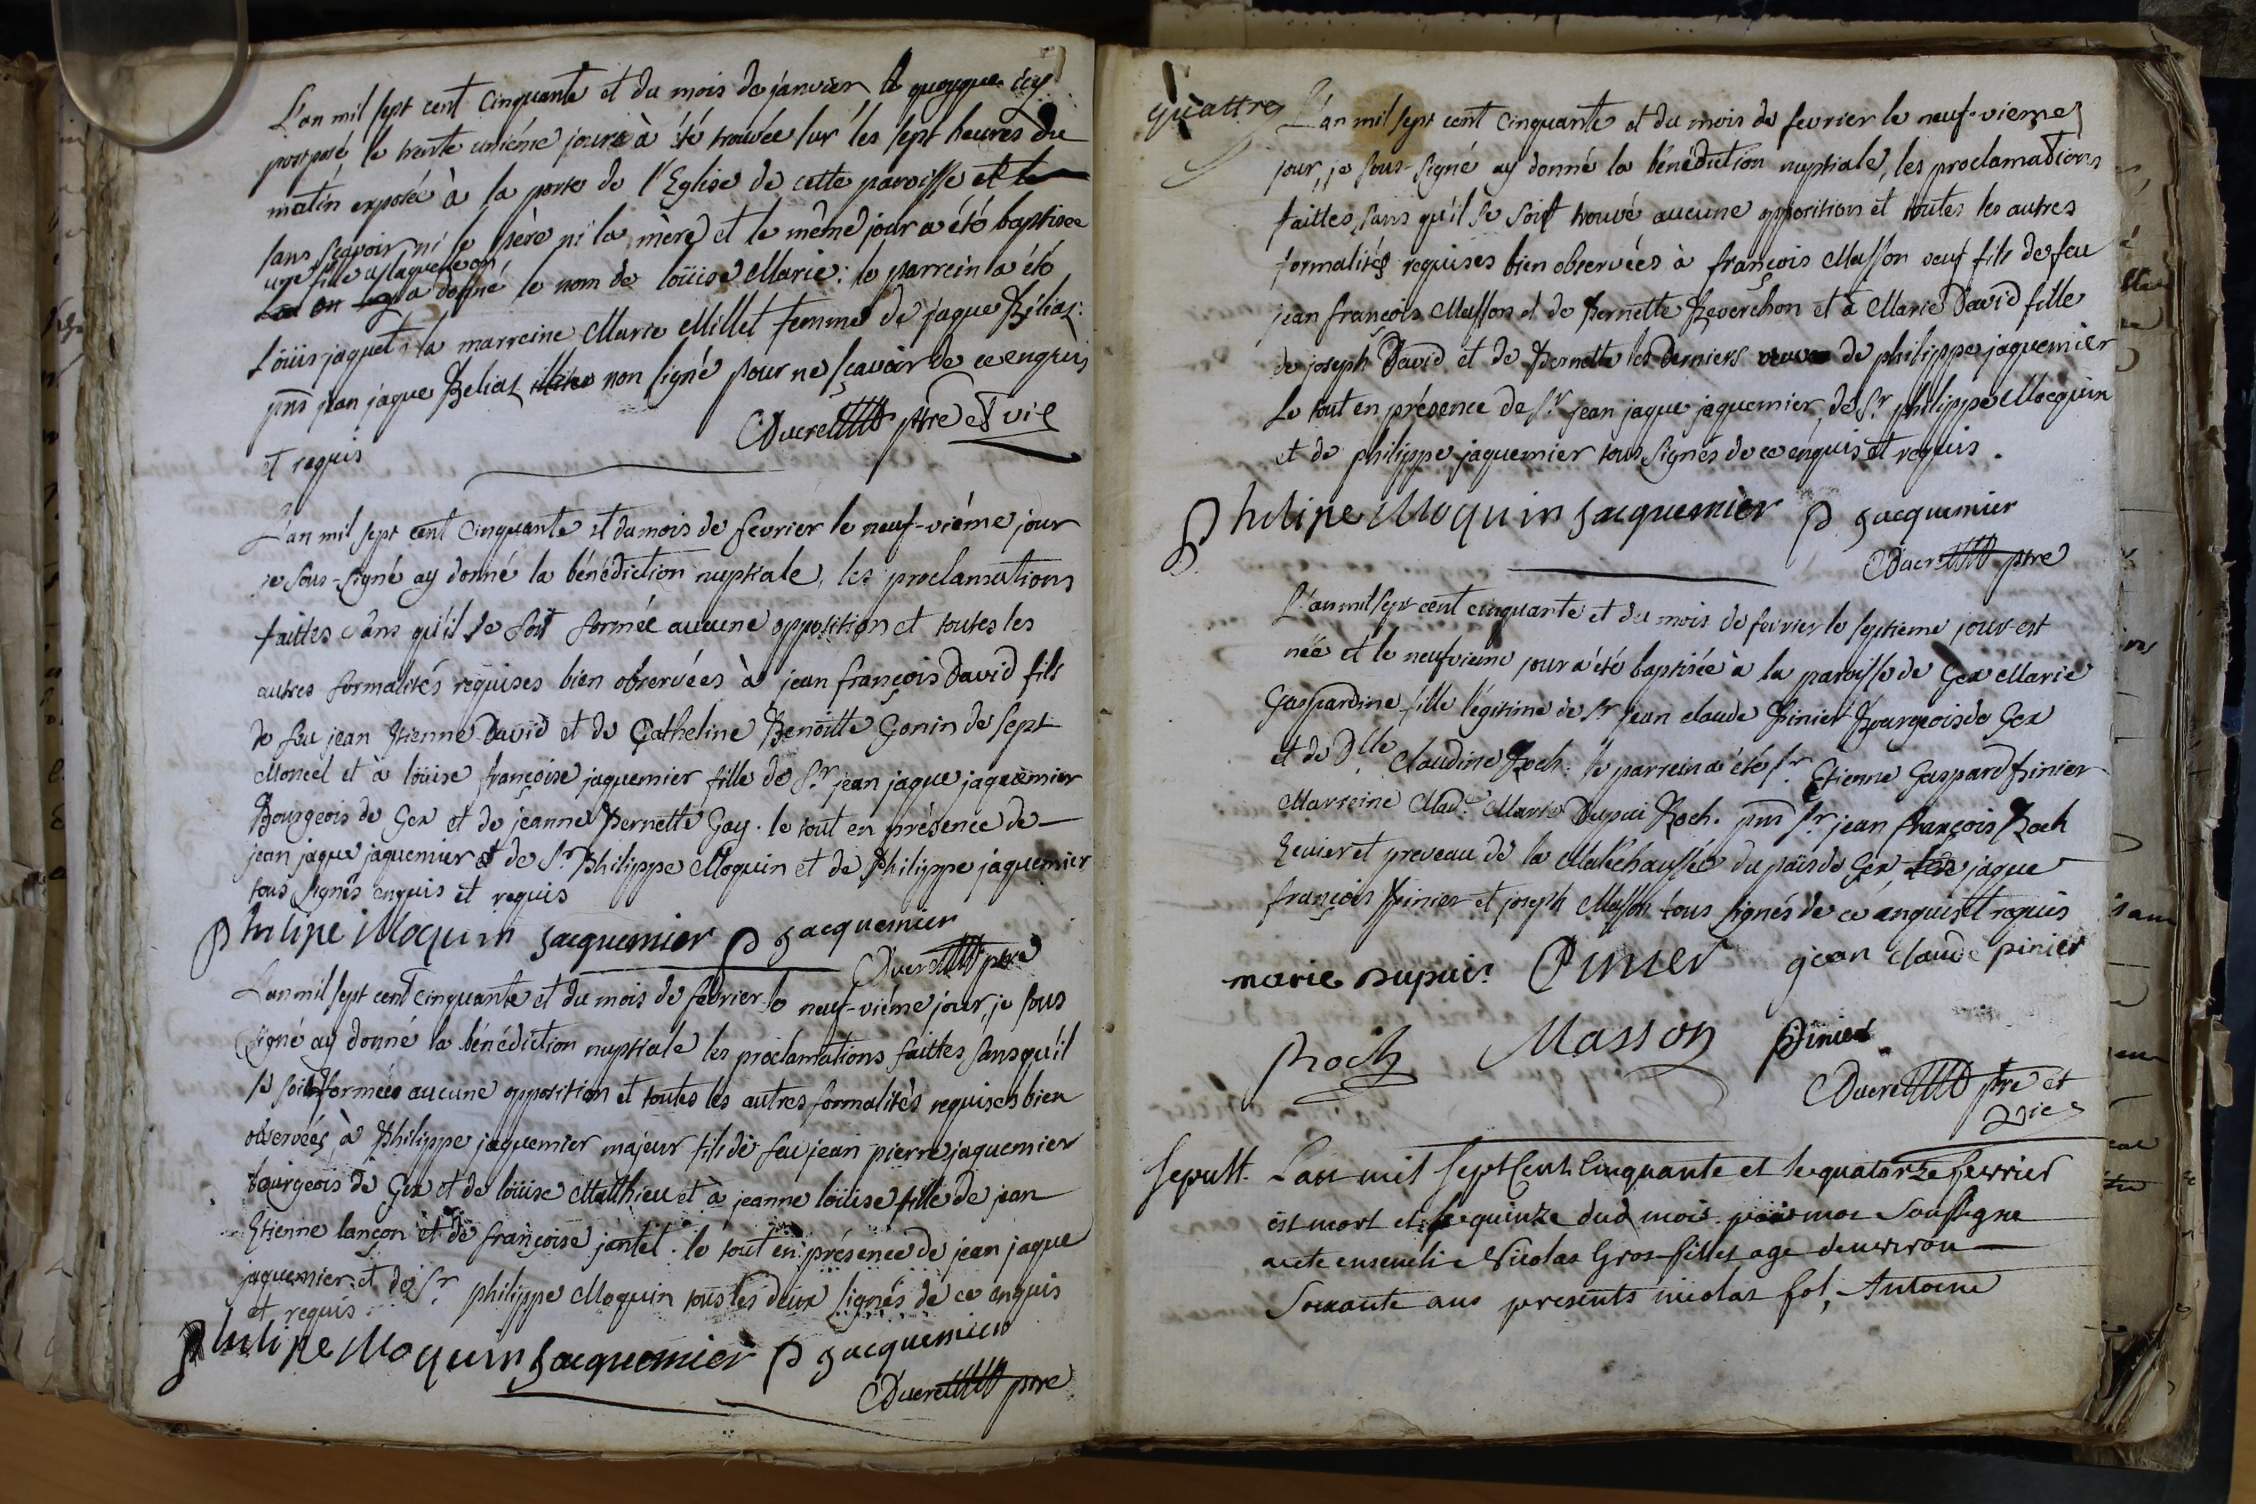 L'an mil sept cent Cinquante et du mois de janvier & quoyque icy
postposé le trente uniéme jour à été trouvée sur les sept heures du
matin exposée à la porte de l'Eglise de cette paroisse et le
sans sçavoir ni le père ni la mère et le même jour a été baptisée
une fille a laquelle on
a donné le nom de loüise Marie: le parrein a été
Loüis jaquet la marreine Marie Millet femme de jaque Belias:
pnts jean jaque Belias non signé pour ne sçavoir de ce enquis
et requis
Ducret ptre et vic
L'an mil sept cent Cinquante et du mois de fevrier le neuf-viéme jour
je sous-signé ay donné la bénédiction nuptiale, les proclamations
faittes sans qu'il se soit formée aucune opposition et toutes les
autres formalités requises bien observées à jean françois David fils
de feu jean Etienne David et de Catheline Benoitte Gonin de Sept
Moncel et à loüise françoise jaquemier fille de Sr jean jaque jaquemier
Bourgeois de Gex et de jeanne Pernette Gay. le tout en présence de
jean jaque jaquemier et de Sr Philippe Moquin et de Philippe jaquemier
tous signés enquis et requis
Philipe Moquin Jacquemier P Jacquemier
Ducret ptre
L'an mil sept cent Cinquante et du mois de fevrier le neuf-viéme jour, je sous
signé ay donné la bénédiction nuptiale les proclamations faittes sans qu'il
se soit formées aucune opposition et toutes les autres formalités requises bien
observées à Philippe jaquemier majeur fils de feu jean pierre jaquemier
bourgeois de Gex et de loüise Matthieu et à jeanne loüise fille de jean
Etienne lançon et de françoise jantet. le tout en présence de jean jaque
jaquemier et de Sr philippe Moquin tous les deux signés de ce enquis
et requis
Philipe Moquin Jacquemier P Jacquemier
Ducret ptre
quattre
L'an mil sept cent Cinquante et du mois de fevrier le neuf-vieme
jour, je sous-signé ay donné la bénédiction nuptiale, les proclamations
faittes sans qu'il se soit trouvé aucune opposition et toutes les autres
formalités requises bien observées à françois Masson veuf fils de feu
jean françois Masson et de Pernette Reverchon et à Marie David fille
de joseph David et de Pernette les derniers veuve de philippe jaquemier
Le tout en présence de Sr jean jaque jaquemier, de Sr philippe Mocquin
et de philippe jaquemier tous signés de ce enquis et requis.
Philipe Moquin Jacquemier P Jacquemier
Ducret ptre
L'an mil sept cent cinquante et du mois de fevrier le septieme jour est
née et le neufvieme jour a été baptisée à la paroisse de Gex Marie
Gaspardine fille légitime de Sr jean claude Pinier Bourgeois de Gex
et de Dlle Claudine Roch: le parrein a été Sr Etienne Gaspard Pinier
Marreine Made Marie Dupui Roch. pnts Sr jean françois Roch
Ecuier et preveau de la Maréchaussée du païs de Gex jaque
françois Pinier et joseph Masson tous signés de ce enquis et requis
marie Dupuis Pinier jean claude pinier
Roch Masson Pinier
Ducret ptre et
vic
sepult.
L'an mil sept Cent Cinquante et le quatorze fevrier
est mort et le quinze dud mois par moi Soussigne
a ete enseveli Nicolas Gros-fillet age d'environ
Soixante ans presents nicolas fol, Antoine